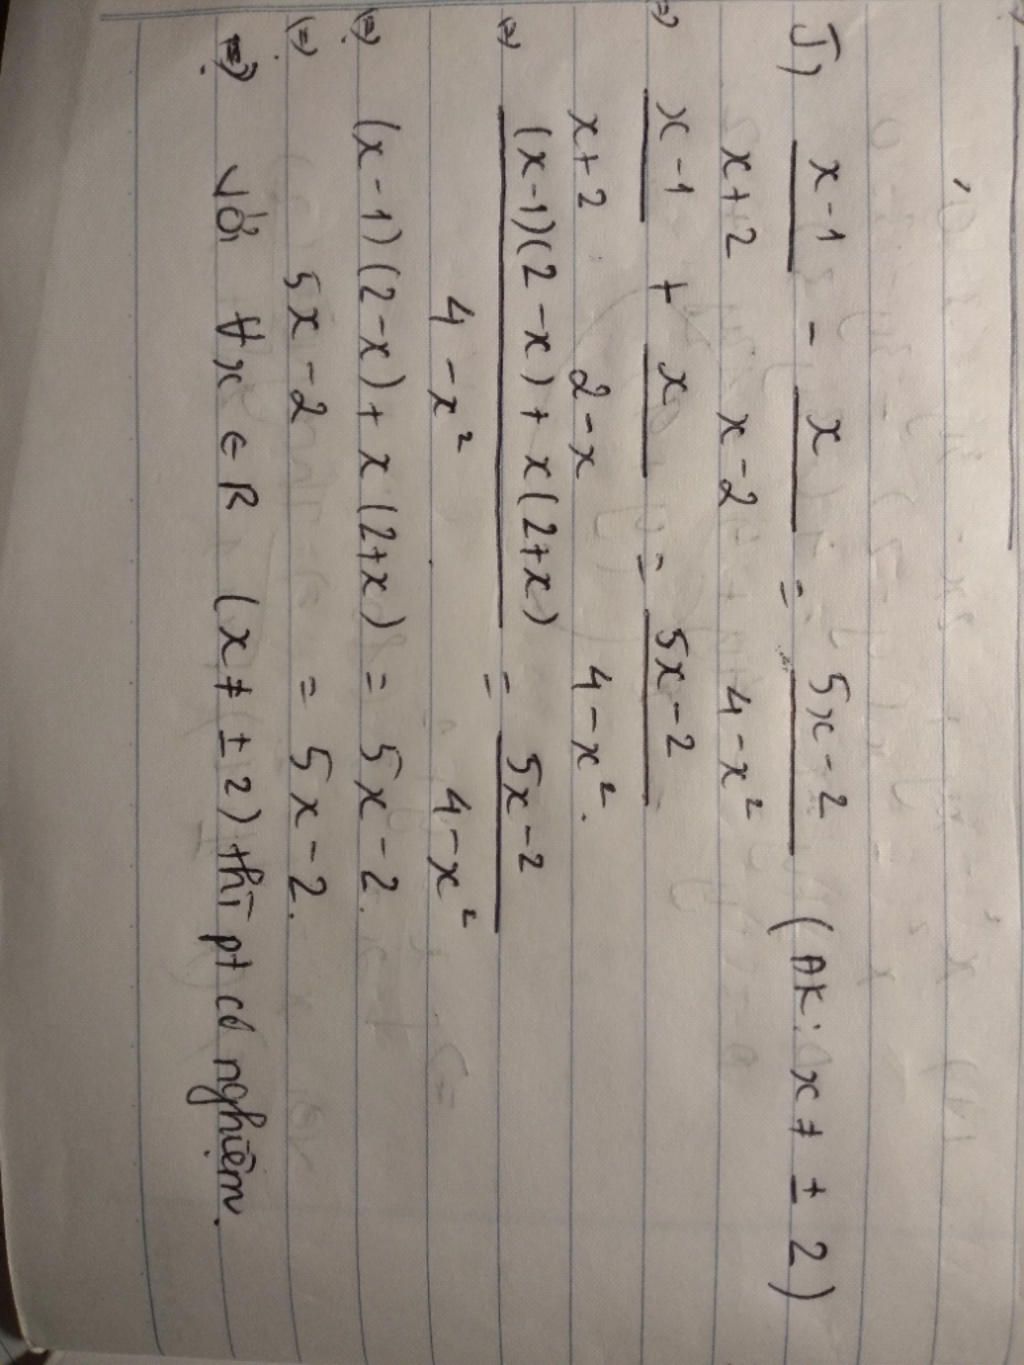 J) (x-1)/(x+2) - x/(x-2) = (5x-2)/(4-x²) (ĐK: x ≠ ± 2)
(=) (x-1)/(x+2) + x/(2-x) = (5x-2)/(4-x²).
(=) ((x-1)(2-x) + x(2+x))/(4-x²) = (5x-2)/(4-x²)
(=) (x-1)(2-x) + x(2+x) = 5x-2.
(=) 5x-2 = 5x-2.
=) Với ∀x ∈ R (x ≠ ± 2) thì pt có nghiệm.